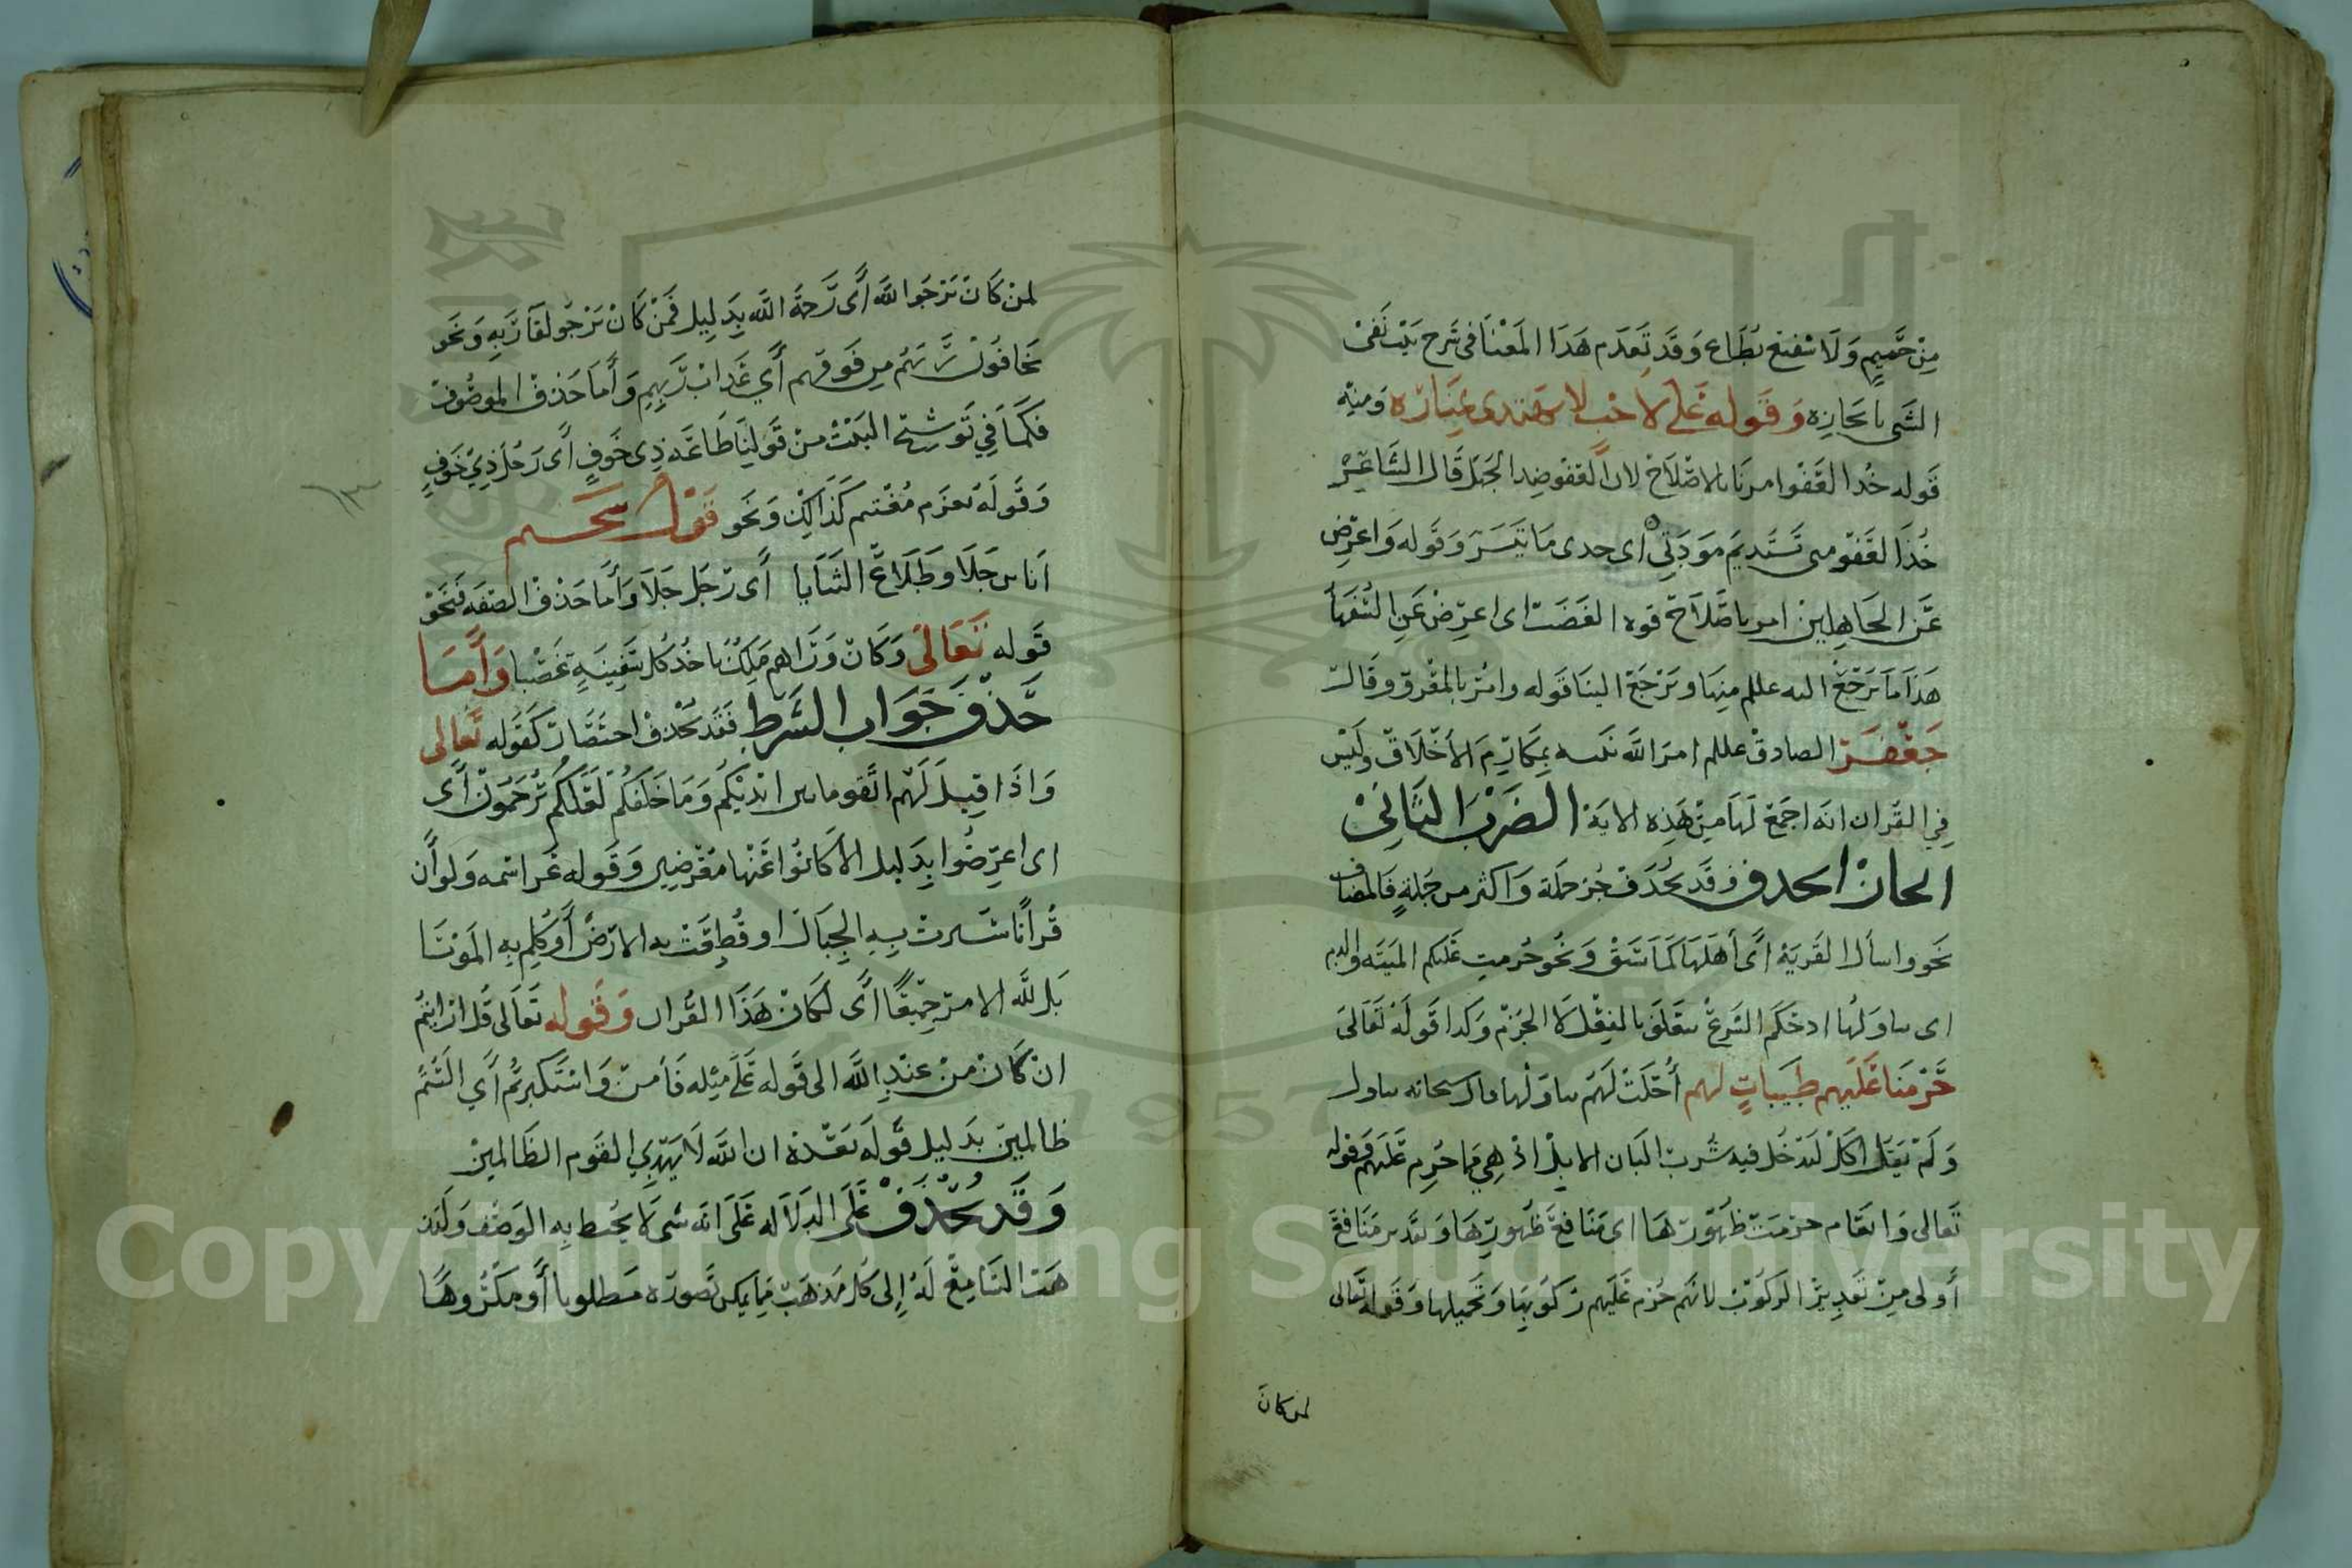 من حميم ولا شفيع يطاع وقد تقدم هذا المعنا في شرح بيت نفي
الشي بايجازه وقوله على لاحب لا يهتدى بمناره ومنه
قوله خذ العفو امرنا بالاصلاح لان العفو ضد الجهل قال الشاعر
خذ العفو مني تستديم مودتي اي خدى ما تيسر وقوله واعرض
عن الجاهلين امر باصلاح قوه الغضب اى اعرض عن السفها
هذا ما يرجع اليه علملم منها ويرجع الينا قوله وامر بالمعرف وقال
جعفر الصادق علملم امر الله نبيه بمكارم الاخلاق وليس
في القران ايه اجمع لها من هذه الاية الضرب الثاني
ايجاز الحدف وقد يحذف جز جملة واكثر من جملة فالمضاف
نحو واسأل القرية اى أهلها كما سبق ونحو حرمت عليكم الميته والدم
اى تناولها اد حكم الشرع يتعلق بالفعل لا الجرم وكدا قوله تعالى
حرمنا عليهم طيبات لهم أحلت لهم تناولها وال سبحانه تناول
ولم يقل اكل ليدخل فيه شرب البان الابل اذ هي مما حرم عليهم وقوله
تعالى وانعام حرمت ظهورها اى منافع ظهورها وتقدير منافع
أولى من تقدير الركوب لانهم حرم عليهم ركوبها وتحميلها وقوله تعالى
لمن كان
لمن كان يرجوا الله أى رحمة الله بدليل فمن كان يرجو لقآ ربه ونحو
يخافون ربهم من فوقهم أي عداب ربهم وأما حذف الموصوف
فكما في توشيح البيت من قولنا طاعة ذى خوف أى رجل ذي خوف
وقوله بعزم مغتنم كذالك ونحو قول سحيم
انا بن جلا وطلاع الثنايا أى رجل جلا وأما حذف الصفه فنحو
قوله تعالى وكان وراهم ملك ياخد كل سفينة غصبا وأما
حذف جواب الشرط فقد يحذف اختصار كقوله تعالى
واذا قيل لهم اتقوا ما بين ايديكم وما خلفكم لعلكم ترحمون أى
اى اعرضوا بدليل الا كانوا عنها معرضين وقوله عز اسمه ولو أن
قرأنا سيرت به الجبال او قطعت به الارض أو كلم به الموتا
بل لله الامر جميعا أى لكان هذا القران وقوله تعالى قل ارايتم
ان كان من عند الله الى قوله على مثله فأمن واستكبرتم أي الستم
ظالمين بدليل قوله بعده ان الله لا يهدي القوم الظالمين
وقد يحذف على الدلاله على انه شى لا يحيط به الوصف وليذ
هب السامع له إلى كل مذهب مما يمكن تصوره مطلوبا أو مكروها
١٣
Copyright © King Saud University
1957